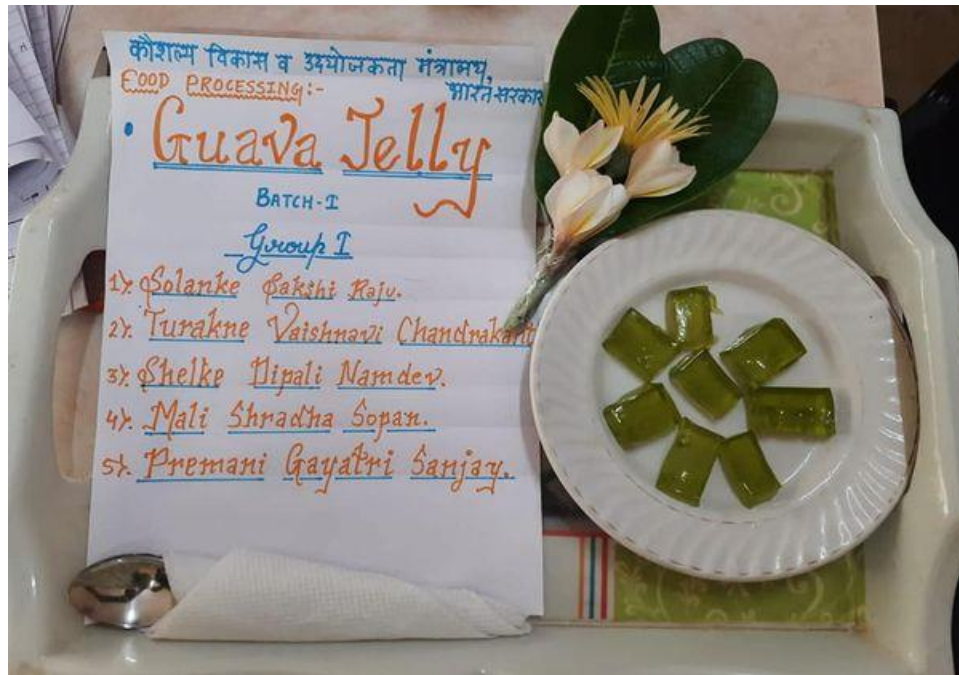 कौशल्य विकास व उदयोजकता मंत्रालय,
भारत सरकार
FOOD PROCESSING:-
• Guava Jelly
BATCH-I
Group I
1). Solanke Sakshi Raju.
2). Turakne Vaishnavi Chandrakant
3). Shelke Dipali Namdev.
4). Mali Shradha Sopan.
5). Premani Gayatri Sanjay.